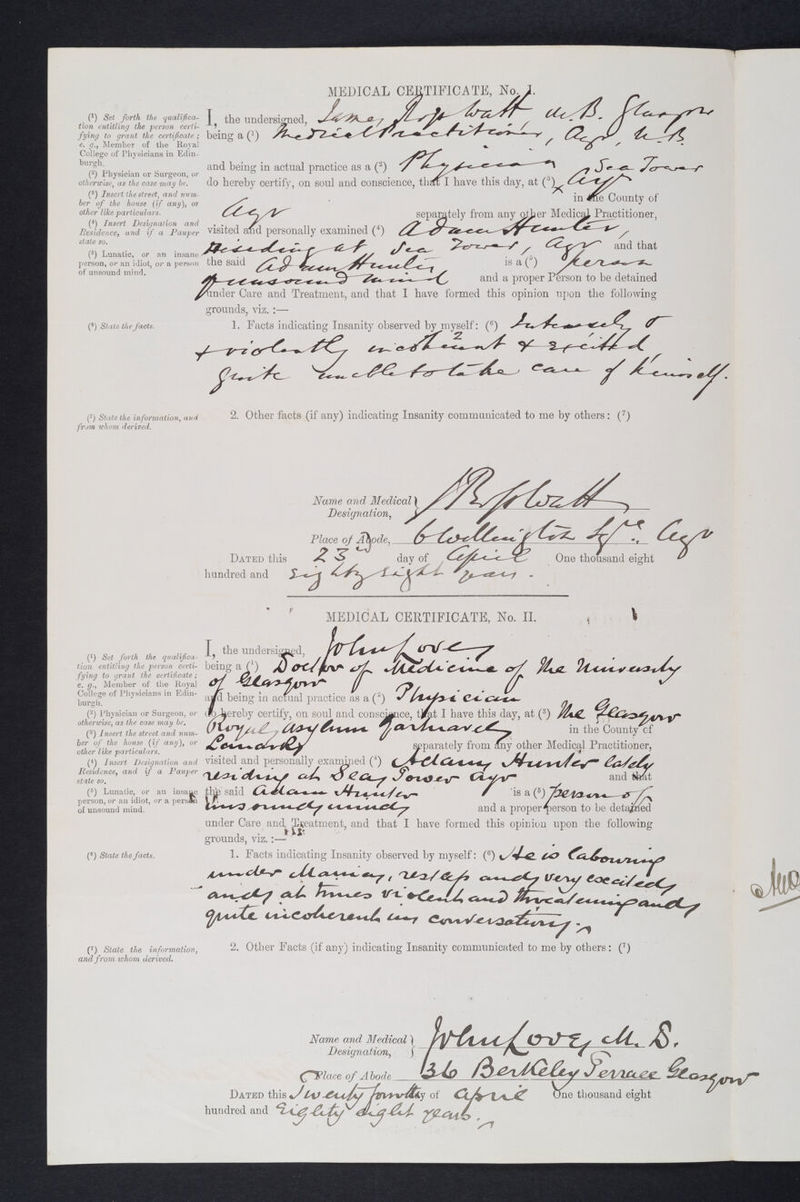 MEDICAL CERTIFICATE, No. I.
(¹) Set forth the qualifica-
tion entitling the person certi-
fying to grant the certificate;
e. g., Member of the Royal
College of Physicians in Edin-
burgh.
(²) Physician or Surgeon, or
otherwise, as the case may be.
(³) Insert the street, and num-
ber of the house (if any), or
other like particulars.
(⁴) Insert Designation and
Residence, and if a Pauper
state so.
(⁵) Lunatic, or an insane
person, or an idiot, or a person
of unsound mind.
I, the undersigned, James Ross Watt, M.B. Glasgow
being a (¹) Medical Practitioner, Ayr, M.B.
and being in actual practice as a (²) Physician
do hereby certify, on soul and conscience, that I have this day, at (³) Sea Tower
Ayr in the County of
Ayr separately from any other Medical Practitioner,
visited and personally examined (⁴) Adam Hunter,
Residing at Sea Tower, Ayr and that
the said Adam Hunter is a (⁵) person
of unsound mind and a proper Person to be detained
under Care and Treatment, and that I have formed this opinion upon the following
grounds, viz. :—
(⁶) State the facts.
1. Facts indicating Insanity observed by myself: (⁶) Intensely
& violently incoherent & excited
quite unable to take care of himself.
(⁷) State the information, and
from whom derived.
2. Other facts (if any) indicating Insanity communicated to me by others: (⁷)
Name and Medical Designation, J Ross Watt
Place of Abode, 6 Wellington Sqre. Ayr
DATED this 23rd day of April One thousand eight
hundred and Eighty Eight years.
MEDICAL CERTIFICATE, No. II.
(¹) Set forth the qualifica-
tion entitling the person certi-
fying to grant the certificate;
e. g., Member of the Royal
College of Physicians in Edin-
burgh.
(²) Physician or Surgeon, or
otherwise, as the case may be.
(³) Insert the street and num-
ber of the house (if any), or
other like particulars.
(⁴) Insert Designation and
Residence, and if a Pauper
state so.
(⁵) Lunatic, or an insane
person, or an idiot, or a person
of unsound mind.
I, the undersigned, John Love
being a (¹) Doctor of Medicine of the University
of Glasgow
and being in actual practice as a (²) Physician
do hereby certify, on soul and conscience, that I have this day, at (³) The Glasgow
Royal Asylum Gartnavel in the County of
Lanark separately from any other Medical Practitioner,
visited and personally examined (⁴) Adam Hunter lately
residing at Sea Tower Ayr and that
the said Adam Hunter is a (⁵) person of
unsound mind and a proper person to be detained
under Care and Treatment, and that I have formed this opinion upon the following
grounds, viz. :—
(⁶) State the facts.
1. Facts indicating Insanity observed by myself: (⁶) He is labouring
under Mania, restless and very excited
and at times violent and threatening and
quite incoherent in conversation.
(⁷) State the information,
and from whom derived.
2. Other Facts (if any) indicating Insanity communicated to me by others: (⁷)
Name and Medical Designation, John Love, M.D.
Place of Abode 36 Berkeley Terrace Glasgow
DATED this Twenty fourth day of April One thousand eight
hundred and Eighty eight years.